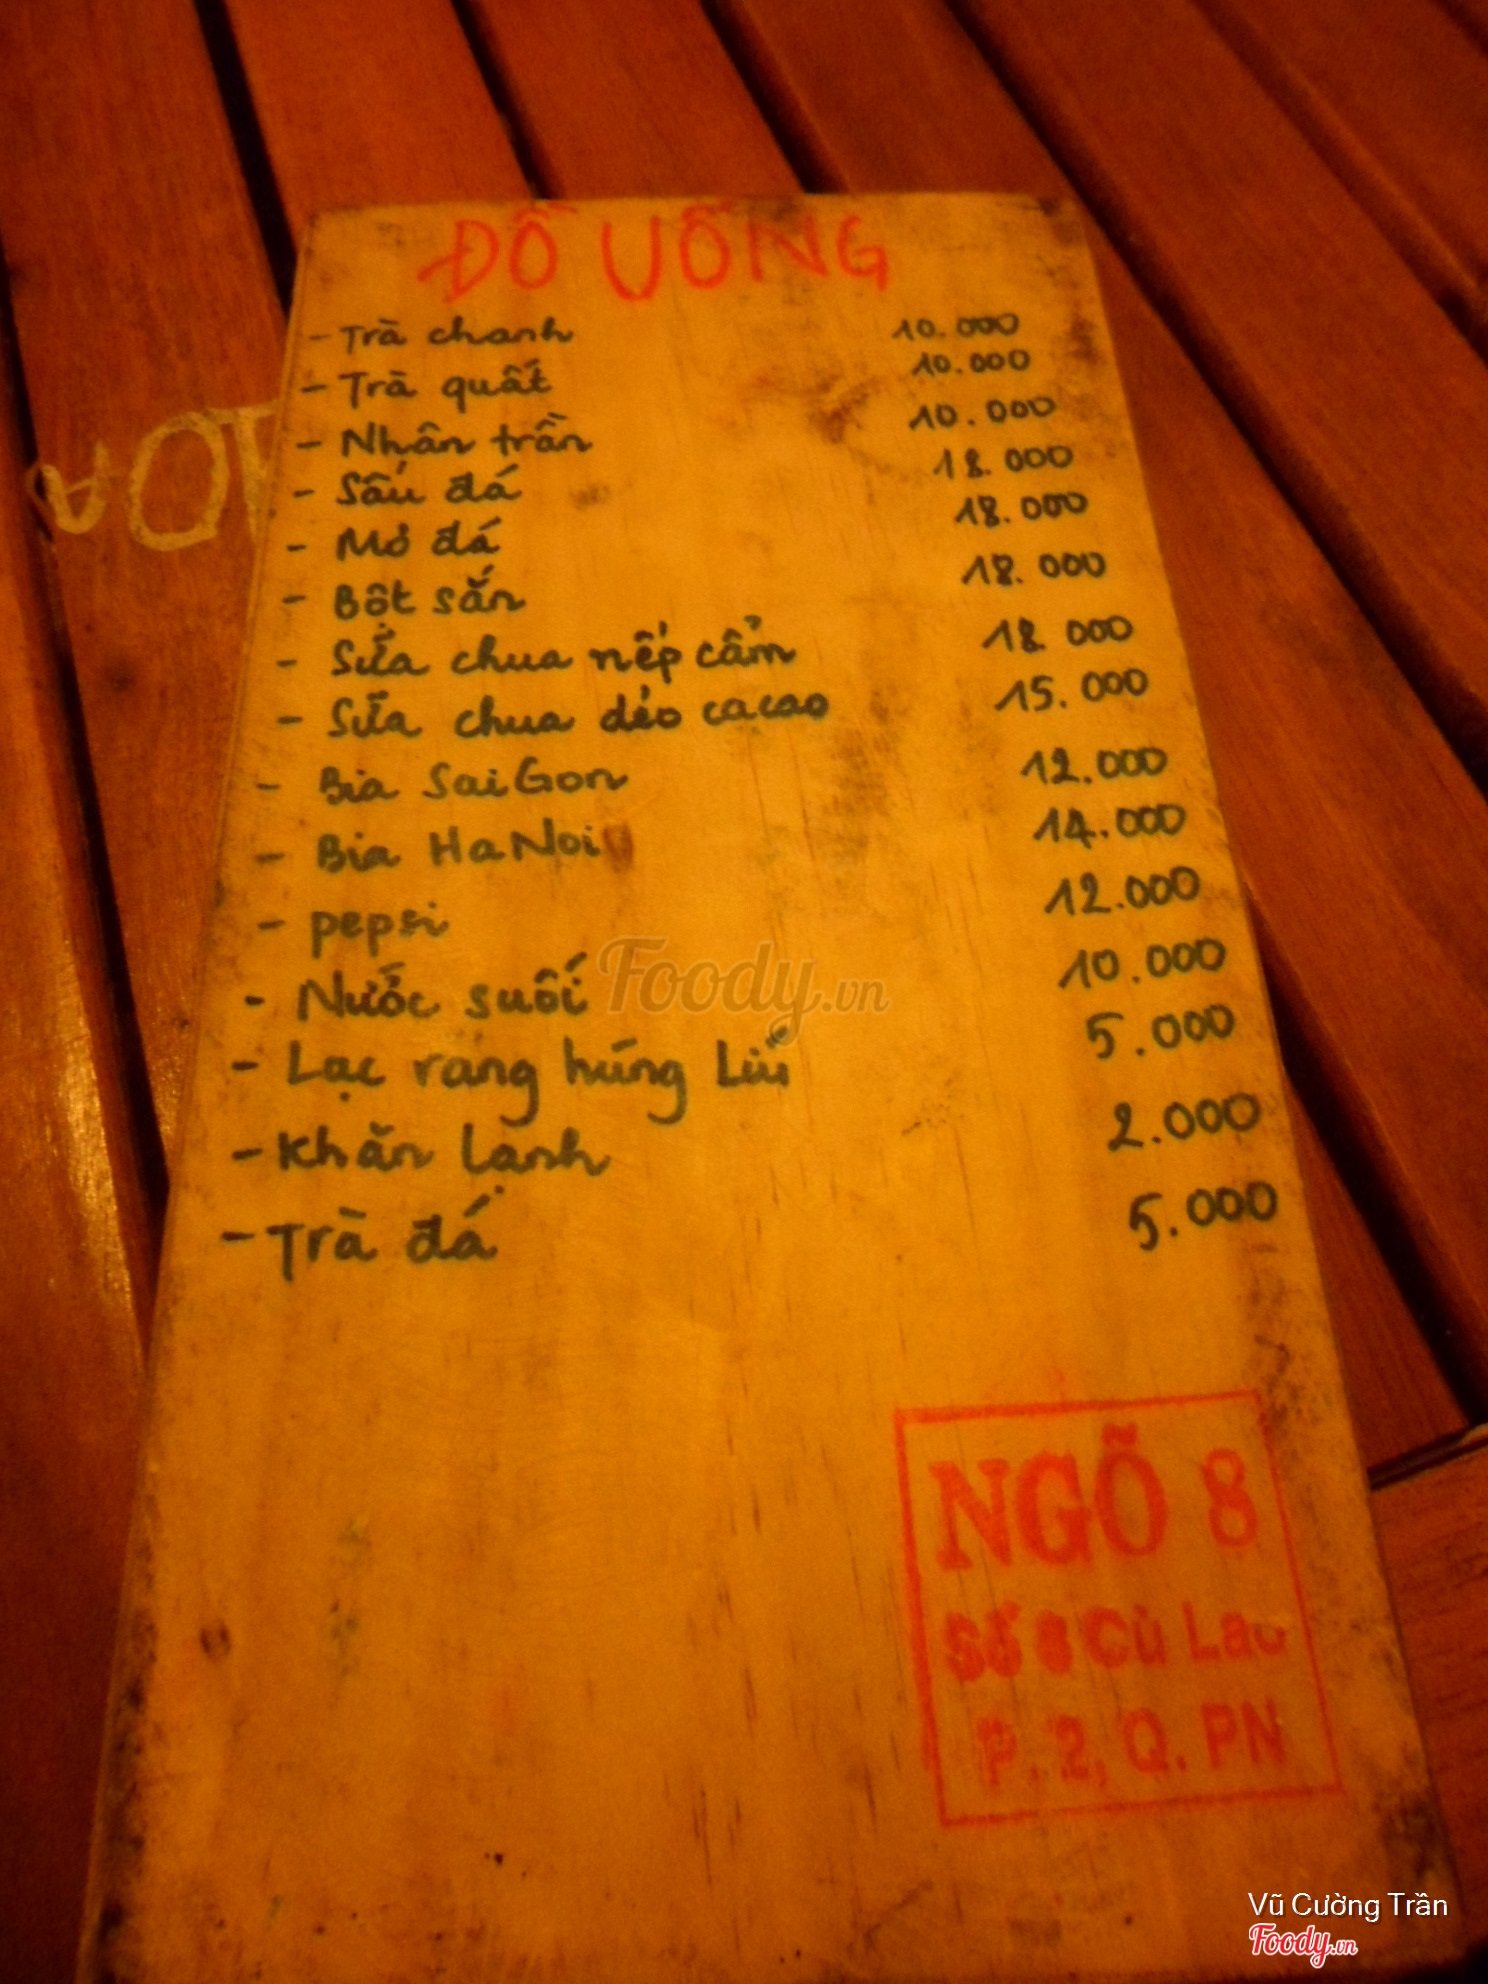 ĐỒ UỐNG
- Trà chanh 10.000
- Trà quất 10.000
- Nhân trần 10.000
- Sấu đá 18.000
- Mơ đá 18.000
- Bột sắn 18.000
- Sữa chua nếp cẩm 18.000
- Sữa chua dẻo cacao 15.000
- Bia SaiGon 12.000
- Bia HaNoi 14.000
- pepsi 12.000
- Nước suối 10.000
- Lạc rang húng Lìu 5.000
- Khăn lạnh 2.000
- Trà đá 5.000
Foody.vn
NGÕ 8
Số 8 Cù Lao
P. 2, Q. PN
Vũ Cường Trần
Foody.vn